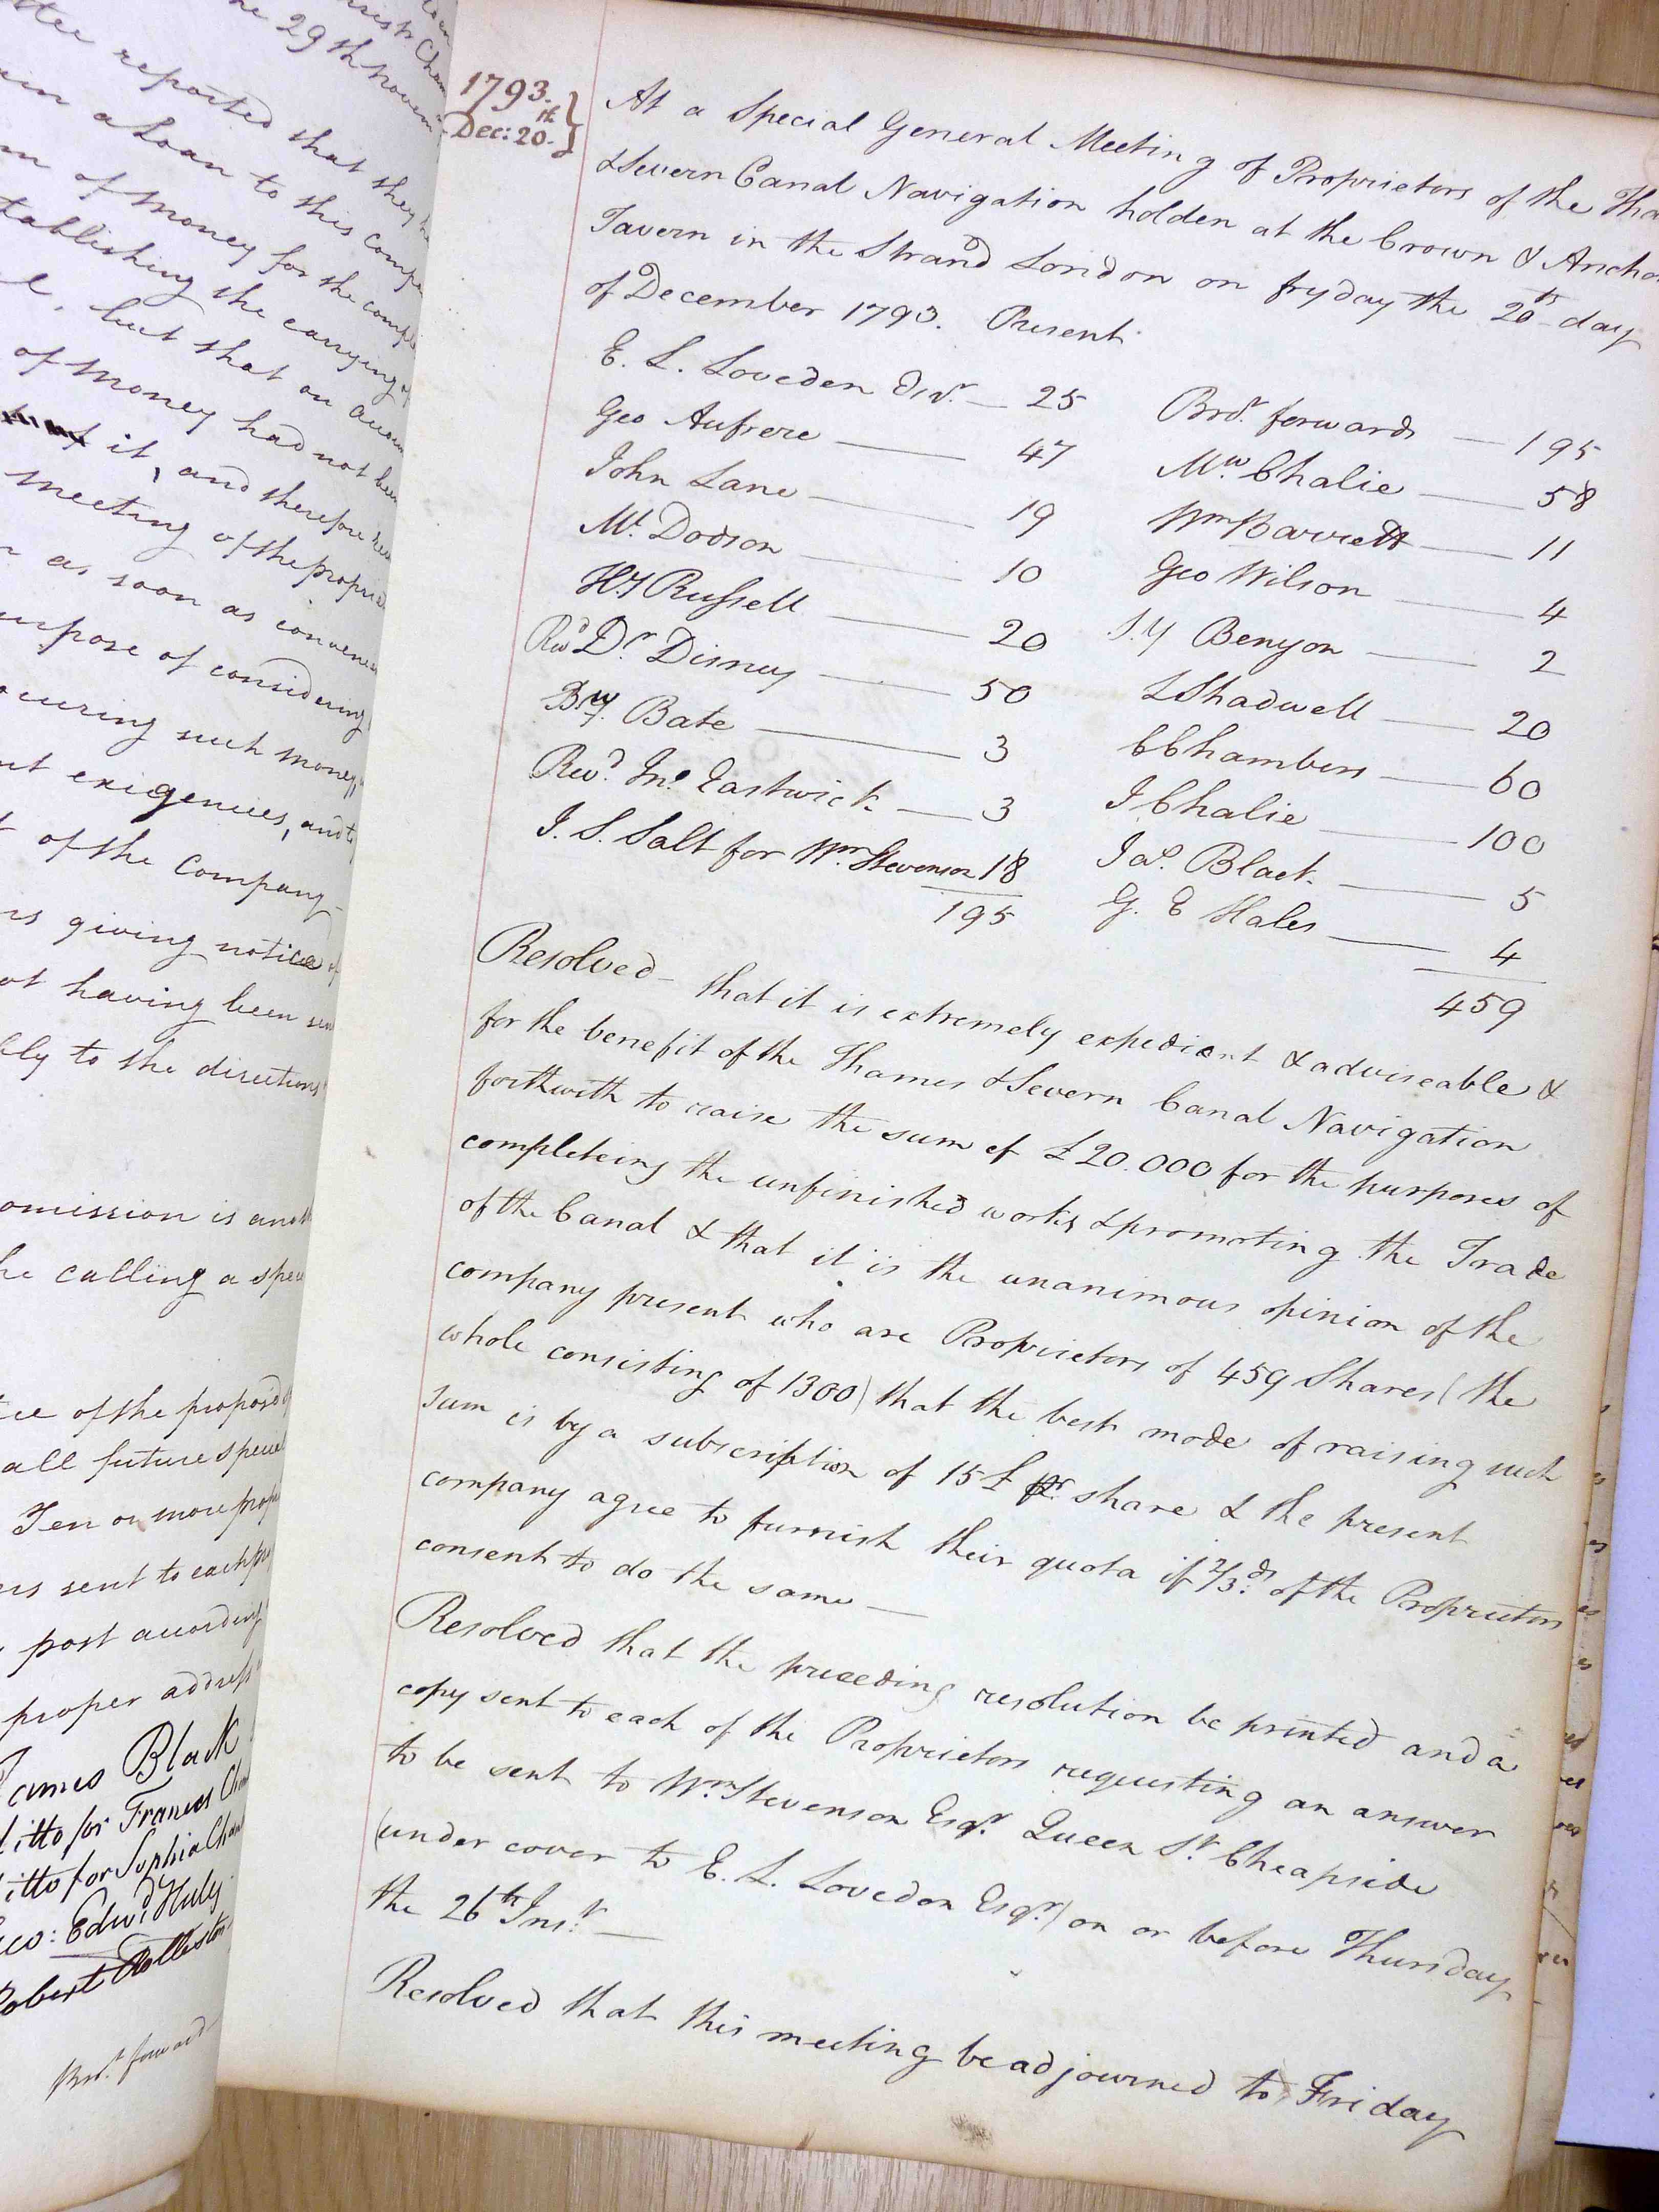 the 29th novem
reported that they
a Loan to this Comp
of money for the comple
establishing the carrying of
but that on accou
of money had not been
it, and therefore
meeting of the proprie
as soon as convenien
purpose of considering
procuring such money,
exigencies, and to
of the Company
giving notice of
not having been sen
to the directions
omission is
the calling a spec
of the proposed
all future special
Ten or more propr
sent to each
post according
proper address
James Black
ditto for Frances
ditto for Sophia
Geo: Edwd
Robert
Brt. forward
1793.
Dec: 20th.
At a Special General Meeting of Proprietors of the Tha
& Severn Canal Navigation holden at the Crown & Ancho
Tavern in the Strand London on fryday the 20th day
of December 1793. Present
E. L. Loveden Esqr. — 25
Geo Aufrere — 47
John Lane — 19
Mr. Dodson — 10
Hy Russell — 20
Revd Dr. Disney — 50
Bate — 3
Revd. Jno. Eastwick — 3
J. S. Salt for Wm Stevenson 18
195
Brot. forwards — 195
Mw. Chalie — 58
Wm Barrett — 11
Geo Wilson — 4
Benyon — 2
L Shadwell — 20
C Chambers — 60
J Chalie — 100
Jas. Black — 5
G. E Hales — 4
459
Resolved - that it is extremely expedient & adviseable &
for the benefit of the Thames & Severn Canal Navigation
forthwith to raise the sum of £20.000 for the purposes of
completeing the unfinished works & promoting the Trade
of the Canal & that it is the unanimous opinion of the
company present who are Proprietors of 459 Shares (the
whole consisting of 1300) that the best mode of raising such
sum is by a subscription of 15£ pr. share & the present
company agree to furnish their quota if 2/3ds. of the Proprietors
consent to do the same —
Resolved that the preceeding resolution be printed and a
copy sent to each of the Proprietors requesting an answer
to be sent to Wm Stevenson Esqr. Queen St. Cheapside
(under cover to E. L. Lovedon Esqr.) on or before Thursday
the 26th Inst. —
Resolved that this meeting be adjourned to Friday